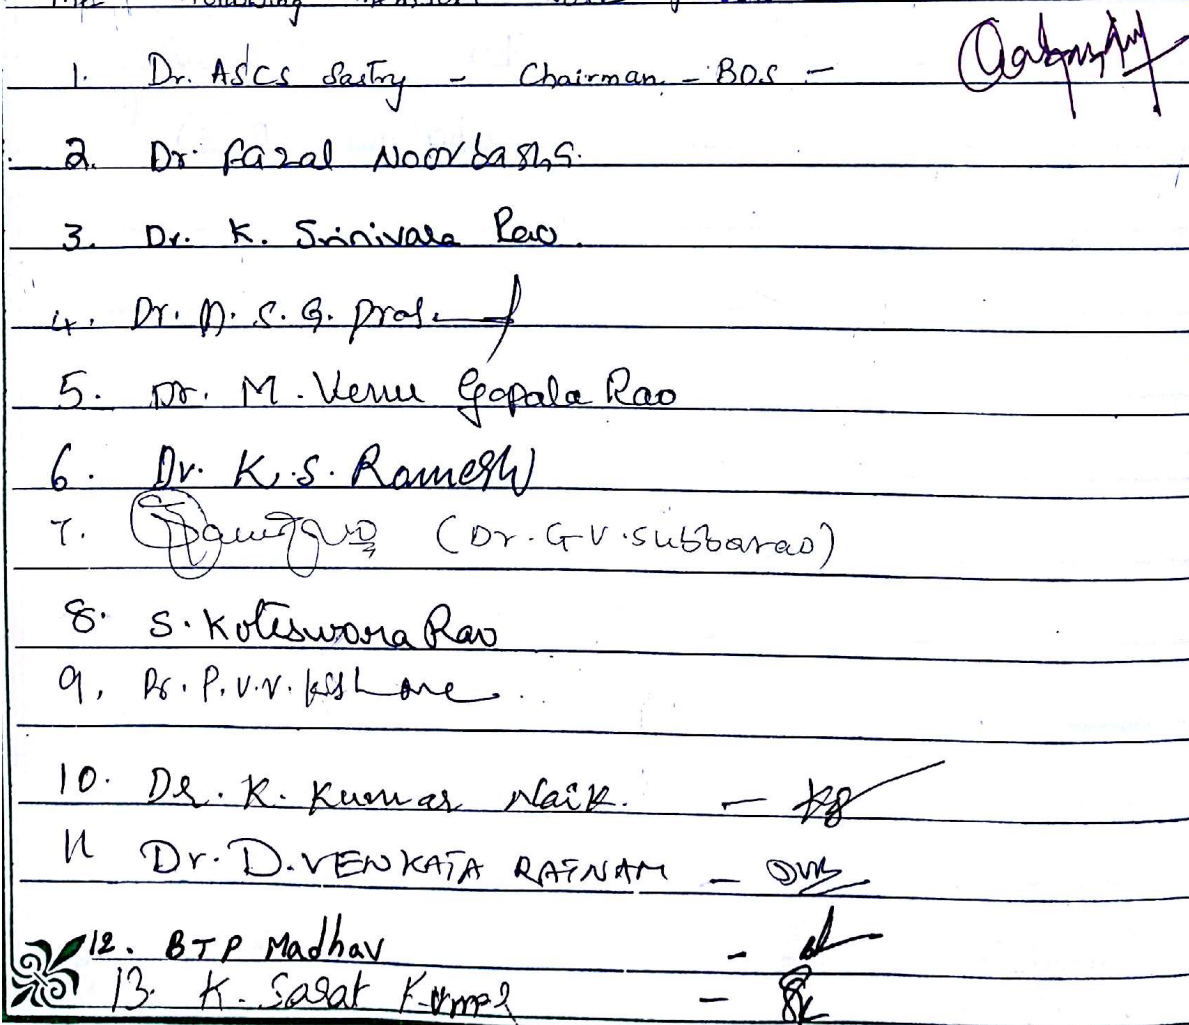 following
1. Dr. ASCS Sastry - Chairman - BOS -
2. Dr. Fazal Noorbasha.
3. Dr. K. Srinivasa Rao.
4. Dr. M. S. G. Prasad
5. Dr. M. Venu Gopala Rao
6. Dr. K. S. Ramesh
7. (Dr. G V. Subbarao)
8. S. Koteswara Rao
9. Dr. P. V. V. Kishore.
10. Dr. K. Kumar Naik. -
11 Dr. D. VENKATA RATNAM -
12. BTP Madhav -
13. K. Sarat Kumar -